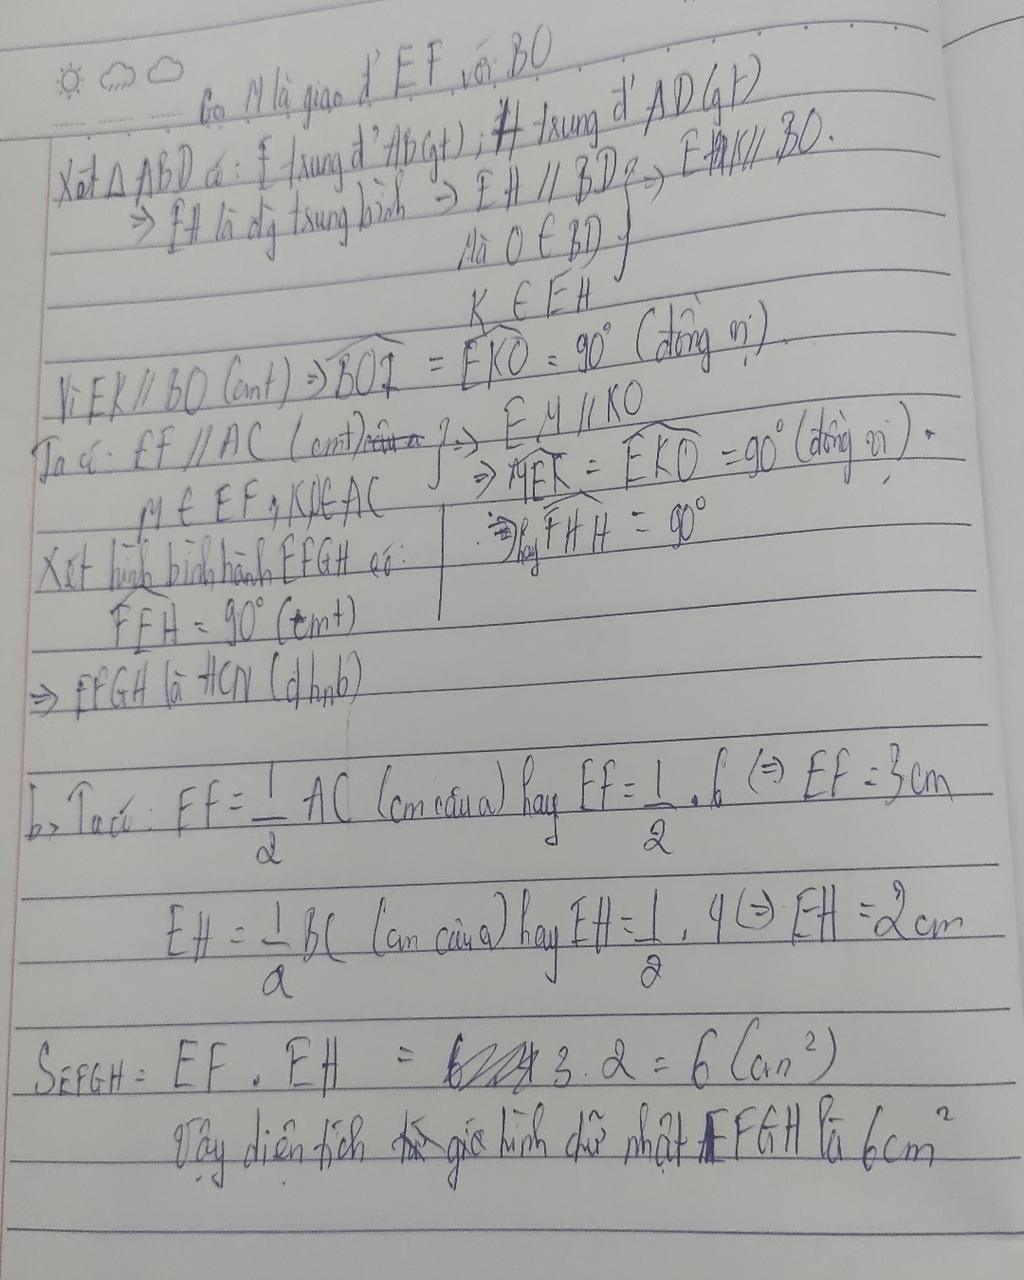 Gọi M là giao đ' EF với BO
Xét Δ ABD có: E trung đ' AB(gt); H trung đ' AD(gt)
⇒ EH là đg trung bình ⇒ EH // BD } ⇒ EK // BO.
Mà O ∈ BD
K ∈ EH
Vì EK // BO (cmt) ⇒ BOI = EKO = 90° (đồng vị)
Ta có: EF // AC (cmt) } ⇒ EM // KO
M ∈ EF, KO∈AC
⇒ MEK = EKO = 90° (đồng vị).
⇒ hay FHH = 90°
Xét hình bình hành EFGH có:
FEH = 90° (cmt)
⇒ EFGH là HCN (dhnb)
b, Ta có: EF = 1/2 AC (cm câu a) hay EF = 1/2 . 6 (⇒) EF = 3cm
EH = 1/2 BC (cm câu a) hay EH = 1/2 . 4 (⇒) EH = 2cm
SEFGH = EF . EH = 3 . 2 = 6 (cm²)
Vậy diện tích giác hình chữ nhật EFGH là 6cm²